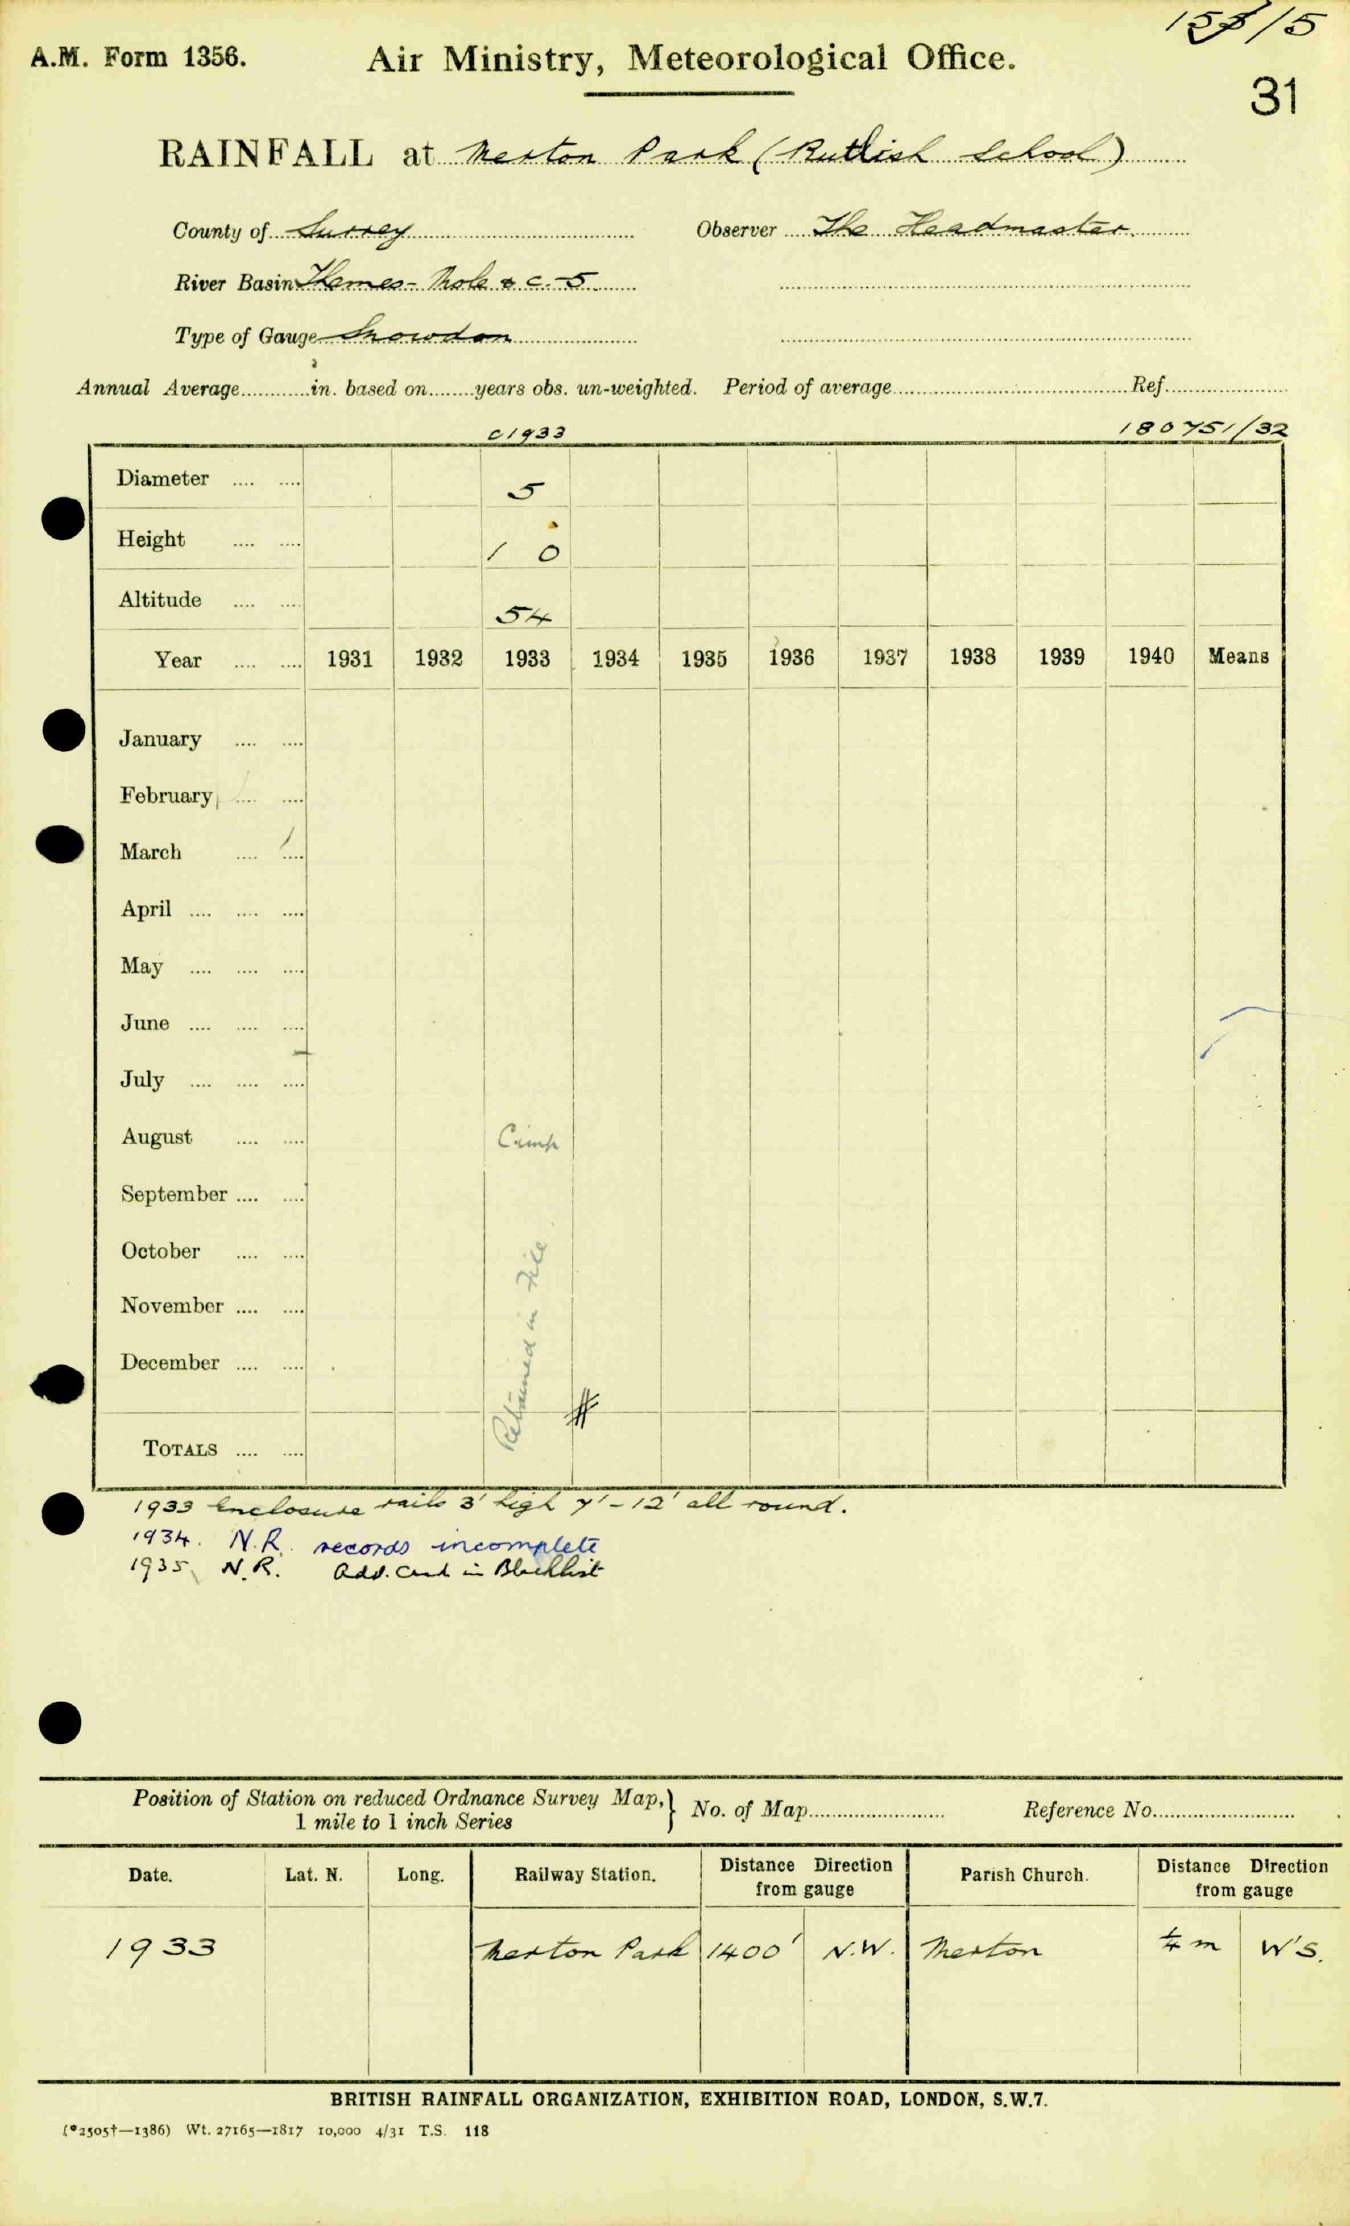 /5
A.M. Form 1356. Air Ministry, Meteorological Office.
31
RAINFALL at Merton Park (Rutlish School)
County of Surrey Observer The Headmaster.
River Basin Thames - Mole & c. - 5
Type of Gauge Snowdon
Annual Average............in. based on........years obs. un-weighted. Period of average.................... Ref....................
c1933 180751/32
Diameter .... .... 5
Height .... .... 1 0
Altitude .... .... 54
Year .... .... 1931 1932 1933 1934 1935 1936 1937 1938 1939 1940 Means
January .... ....
February .... ....
March .... ....
April .... .... ....
May .... .... ....
June .... .... ....
July .... .... ....
August .... ....
September .... ....
October .... ....
November .... ....
December .... ....
Retained in File
TOTALS .... ....
1933 Enclosure rails 3' high 7' - 12' all round.
1934. N.R. records incomplete
1935 N.R. Add. Card in Blacklist
Position of Station on reduced Ordnance Survey Map, } No. of Map........................ Reference No.........................
1 mile to 1 inch Series
Date. Lat. N. Long. Railway Station. Distance Direction from gauge Parish Church. Distance Direction from gauge
1933 Merton Park 1400' N.W. Merton ¼ m W'S.
BRITISH RAINFALL ORGANIZATION, EXHIBITION ROAD, LONDON, S.W.7.
(*2505†—1386) Wt. 27165—1817 10,000 4/31 T.S. 118